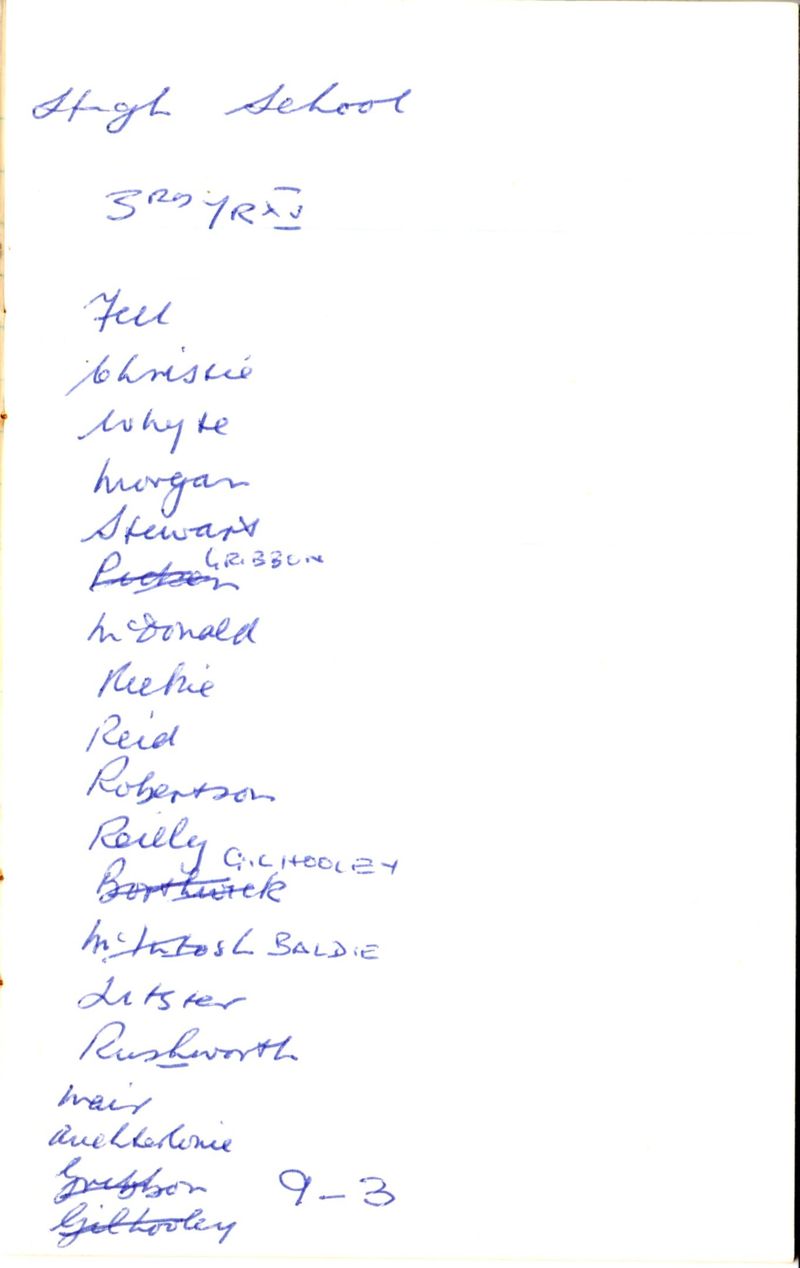 High School
3RD YR XV
Fell
Christie
Whyte
Morgan
Stewart
GRIBBON
McDonald
Reekie
Reid
Robertson
Reilly
GILHOOLEY
Borthwick
McIntosh BALDIE
Litster
Rushworth
Mair
Auchterlonie
Gribbon 9-3
Gilhooley